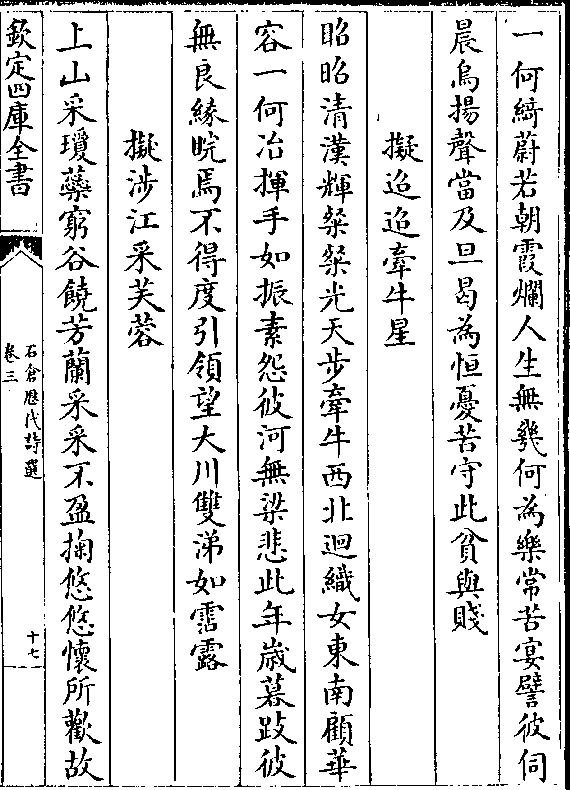 一何綺蔚若朝霞爛人生無幾何為樂常苦宴譬彼伺
晨鳥揚聲當及旦曷為恒憂苦守此貧與賤
擬迢迢牽牛星
昭昭清漢輝粲粲光天步牽牛西北迴織女東南顧華
容一何冶揮手如振素怨彼河無梁悲此年歲暮跂彼
無良緣睆焉不得度引領望大川雙涕如霑露
擬涉江采芙蓉
上山采瓊蘂窮谷饒芳蘭采采不盈掬悠悠懷所歡故
欽定四庫全書
石倉歷代詩選
卷三
十七